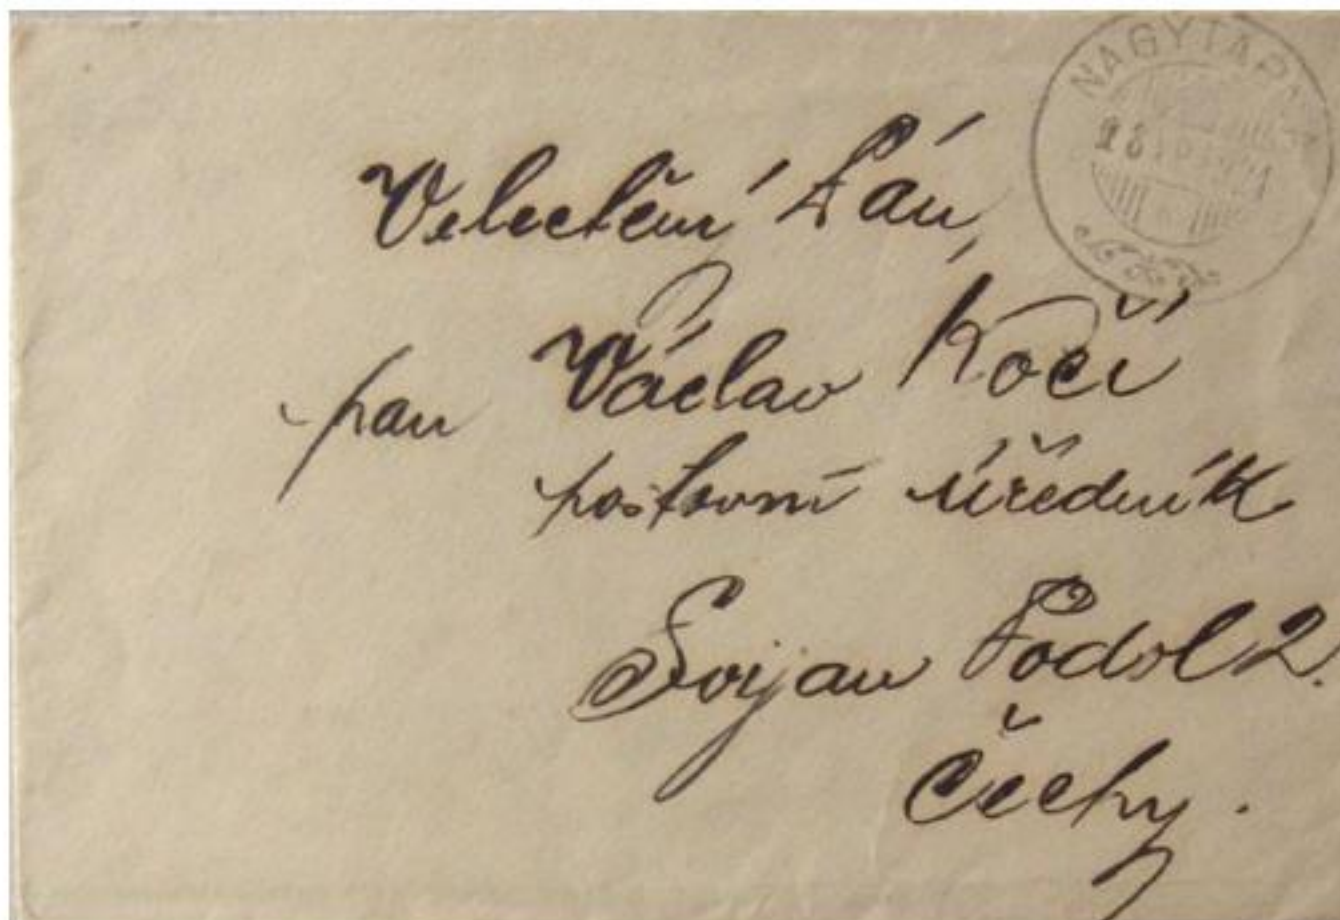 NAGYTARNA
Velectěný Pán,
pan Václav Kočí
poštovní úředník
Svijan Podol 2.
Čechy.